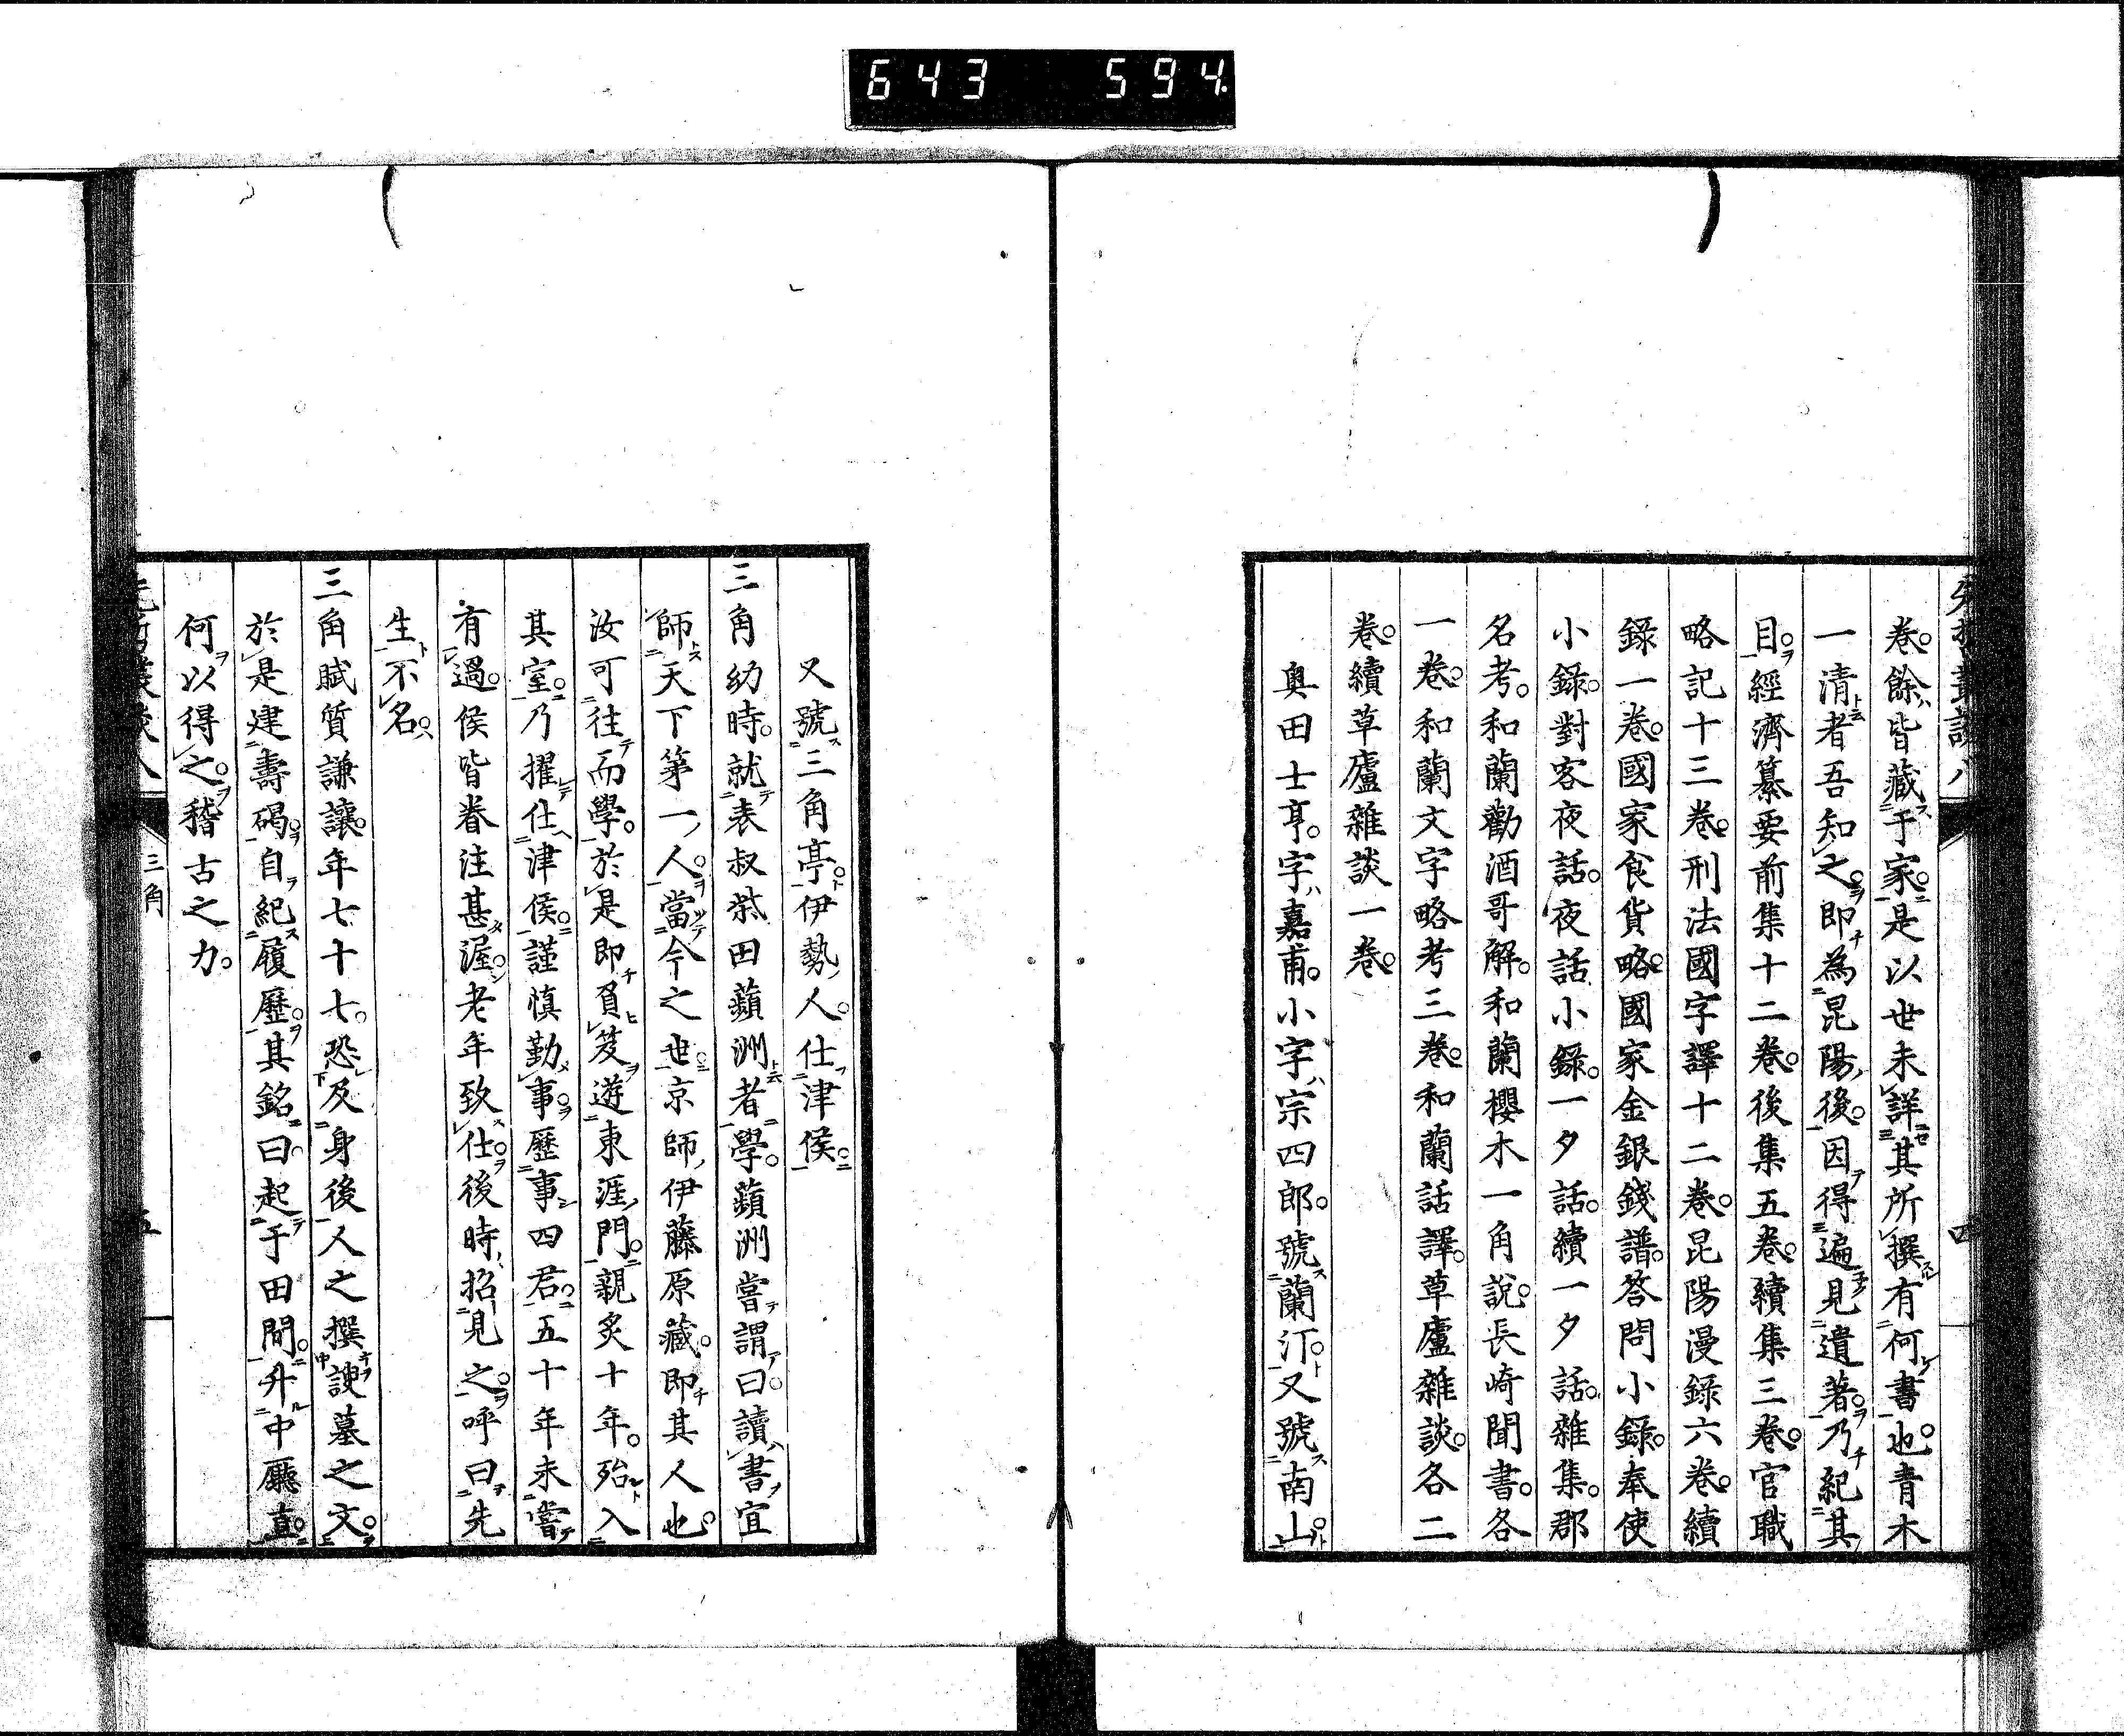 643 594
卷。餘皆藏于家。是以世未詳其所撰有何書也。青木
一清者吾知之。即為昆陽後。因得遍見遺著。乃紀其
目。經濟纂要前集十二卷。後集五卷。續集三卷。官職
略記十三卷。刑法國字譯十二卷。昆陽漫錄六卷。續
錄一卷。國家食貨略。國家金銀錢譜。答問小錄。奉使
小錄。對客夜話。夜話小錄。一夕話。續一夕話。雜集。郡
名考。和蘭勸酒哥解。和蘭櫻木一角說。長崎聞書。各
一卷。和蘭文字略考三卷。和蘭話譯。草廬雜談。各二
卷。續草廬雜談一卷。
奧田士亨。字嘉甫。小字宗四郎。號蘭汀。又號南山。
四
又號三角亭。伊勢人。仕津侯。
三角幼時。就表叔柴田蘋洲者學。蘋洲嘗謂曰。讀書宜
師天下第一人。當今之世。京師伊藤原藏。即其人也。
汝可往而學。於是即負笈遊東涯門。親炙十年。殆入
其室。乃擢仕津侯。謹慎勤事。歷事四君。五十年未嘗
有過。侯皆眷注甚渥。老年致仕。後時招見之。呼曰先
生不名。
三角賦質謙讓。年七十七。恐及身後人之撰諛墓之文。
於是建壽碣。自紀履歷。其銘曰。起于田間。升中廳直。
何以得之。稽古之力。
三角
五